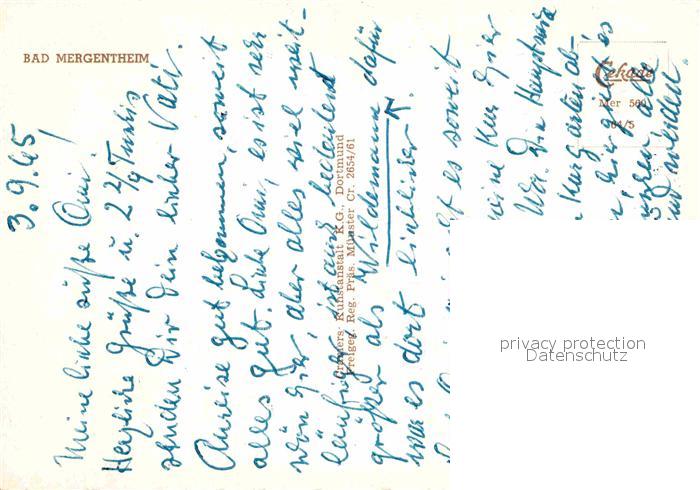 BAD MERGENTHEIM
3.9.65
Meine liebe süße Omi!
Herzliche Grüße u. 2 2/4
senden Dir Dein lieber Vati.
Anreise gut bekommen, soweit
alles gut. Liebe Omi, es ist sehr
schön hier, aber alles viel weit-
läufiger, ist auch bedeutend
größer als Wildemann dafür
war es dort lieblicher.
ist es soweit
meine Kur hier
Wo. Die Hauptsache
Kurgarten ab-
hier gibt es
alle
und werden.
Cramers Kunstanstalt K.G., Dortmund
Freigeg. Reg. Präs. Münster, Cr. 2654/61
Cekade
Mer 560
64/5
privacy protection
Datenschutz